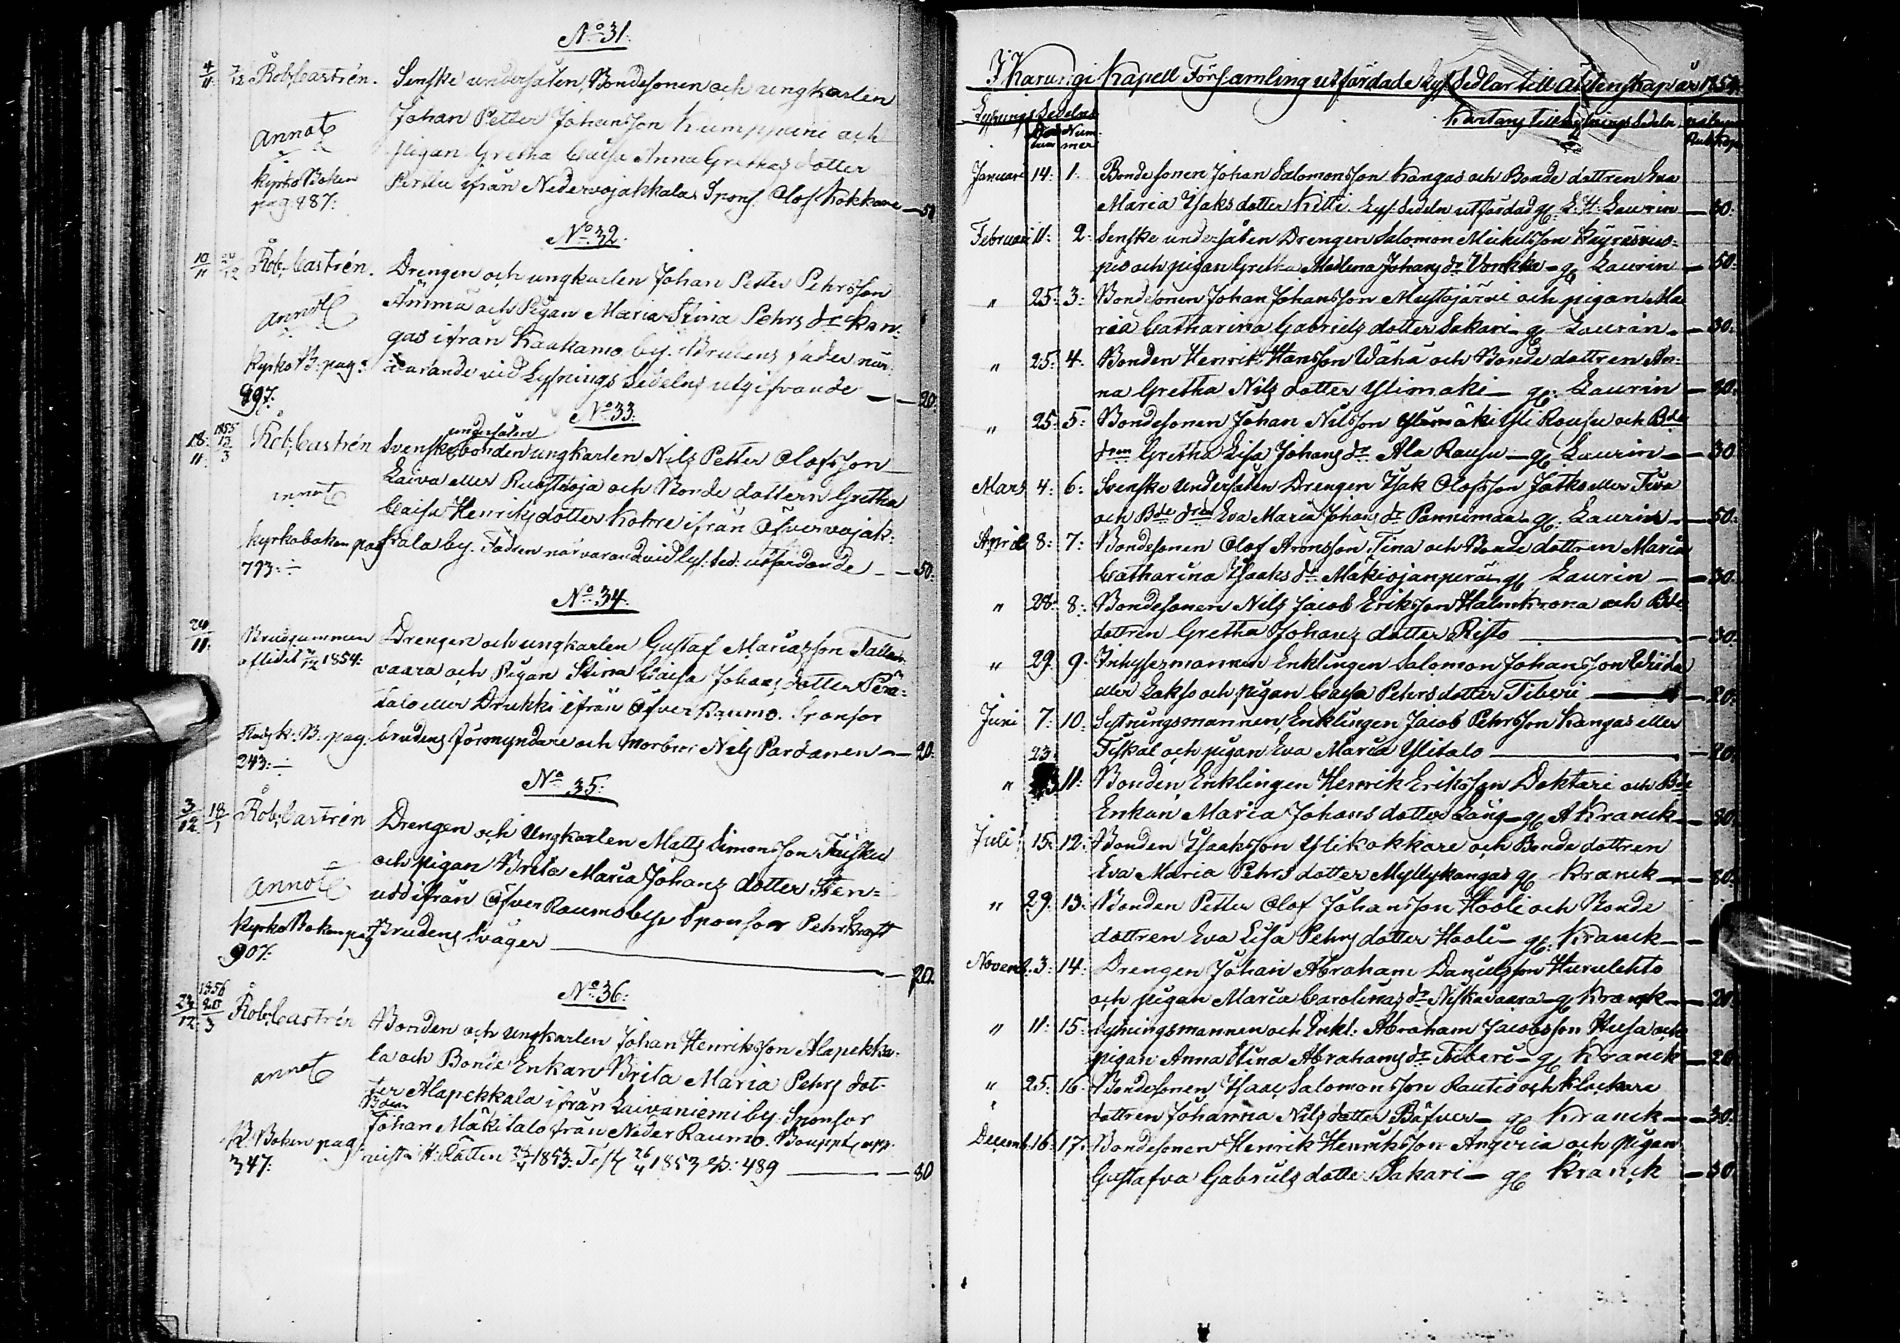 No 31.
4/11 7/12 Rob. Castrén. Senske undersåten, Bondesonen och ungkarlen
Johan Petter Johansson Kumppuini och
annot pigan Gretha Caisa Anna Grethas dotter
Kyrko Boken ifrån Nedervojakkala Spons. Olof Kokkare — 50
pag 487:
No 32.
10/11 Rob. Castrén. Drengen och ungkarlen Johan Petter Pehrsson
Ämmä och Pigan Maria Stina Pehrs dr Kan-
annot gas ifrån Kaakamo by. Brudens fader när-
Kyrko B: pag: varande vid Lysnings Sedelns utgifvande — 20.
897.
No 33.
undersåten
18/11 1855 13/3 Rob. Castrén Svenske bonden ungkarlen Nils Petter Olofsson
Laiva eller Ruostaoja och Bonde dottern Gretha
annot Caisa Henriks dotter Kohre ifrån Öfvervojak-
Kyrkoboken pag kala by. Fadren närvarand vid lys: sed: utfärdande — 50.
793:
No 34.
24/11 Brudgummen Drengen och ungkarlen Gustaf Mariasson
afliden 1854: vaara och Pigan Stina Caisa Johans dotter Perä-
talo eller Drukki ifrån Öfver Raumo. Sponsor
K: B: pag. brudens förmyndare och morbror Nils Pardanen — 20.
243:
No 35.
3/12 18/1 Rob. Castrén Drengen och Ungkarlen Matts Simonsson
och pigan Brita Maria Johans dotter
annot ifrån Öfver Raumo by Sponsor Pehr
Kyrko Boken pag Brudens Svåger — 20.
907.
No 36.
24/12 1856 20/3 Rob. Castrén Bonden och Ungkarlen Johan Henriksson Alapekka-
la och Bonde Enkan Brita Maria Pehrs dot-
annot ter Alapekkala ifrån Laivaniemi by. Sponsor
Bonden
Johan Mäkitalo från Neder Raumo. Bouppt. upp.
K: Boken pag: 1853: 26/4 1853 489 — 80
347:
I Karungi Kapell Församling utfärdade Lys Sedlar till äktenskap år 1854.
Lysnings Sedelns
Da-tum Num-mer
Januari 14. 1. Bondesonen Johan Salomonsson Kangas och Bonde dottren Eva
Maria Isaks dotter Kitti. Lys. Sedeln utfärdad af L. H. Laurin — 30.
Februari 11. 2. Senske undersåten Drengen Salomon Mickelsson
och pigan Gretha Madlena Johans dr Vonkka — af Laurin — 50.
" 25. 3. Bondesonen Johan Johansson Mustajärvi och pigan Ma-
ria Catharina Gabriels dotter Sakari — af Laurin — 30.
" 25. 4. Bonden Henrik Hansson Wäha och Bonde dottren An-
na Gretha Nils dotter Ylimaki — af Laurin —
" 25. 5. Bondesonen Johan Nilsson Yli Rousu och Bde
drn Gretha Lisa Johans dr Ala Rausu — af Laurin — 30.
Mars 4. 6. Svenske Undersåten Drengen Isak Olofsson Jatko eller Fiva
och Bde drn Eva Maria Johans dr — af Laurin — 50.
April 8. 7. Bondesonen Olof Aronsson Tina och Bonde dottren Maria
Catharina Isaks dr Makiojanperä — af Laurin — 30.
" 28. 8. Bondesonen Nils Jacob Eriksson Halmkrona och Bde
dottren Gretha Johans dotter Risto — 30.
" 29. 9. Inhysesmannen Enklingen Salomon Johansson Wiida
eller Lakso och pigan Caisa Pehrs dotter Fiberi — 20.
Juni 7. 10. Sytningsmannen Enklingen Jacob Pehrsson Kangas eller
Fiskal och pigan Eva Maria Ylitalo — 20.
" 23. 11. Bonden Enklingen Henrik Eriksson Doktare och Bde
Enkan Maria Johans dotter Lång — af A Kranck — 80.
Juli 15. 12. Bonden Isaksson Ylikokkare och Bonde dottren
Eva Maria Pehrs dotter Myllykangas af Kranck — 80.
" 29. 13. Bonden Petter Olof Johansson Hooli och Bonde
dottren Eva Lisa Pehrs dotter Hooli — af Kranck —
Novemb. 3. 14. Drengen Johan Abraham Danielsson Hurulehto
och pigan Maria Carolinas dr Niskavaara — af Kranck — 20.
" 11. 15. Sytningsmannen och Enkl. Abraham Jacobsson Husa och
pigan Anna Stina Abrahams dr Fiberi — af Kranck — 20.
" 25. 16. Bondesonen Isaac Salomonsson Rautio och klockare
dottren Johanna Nils dotter Bäfver — af Kranck — 30.
Decemb. 16. 17. Bondesonen Henrik Henriksson Angeria och pigan
Gustafva Gabriels dotter Sakari — af Kranck — 30.